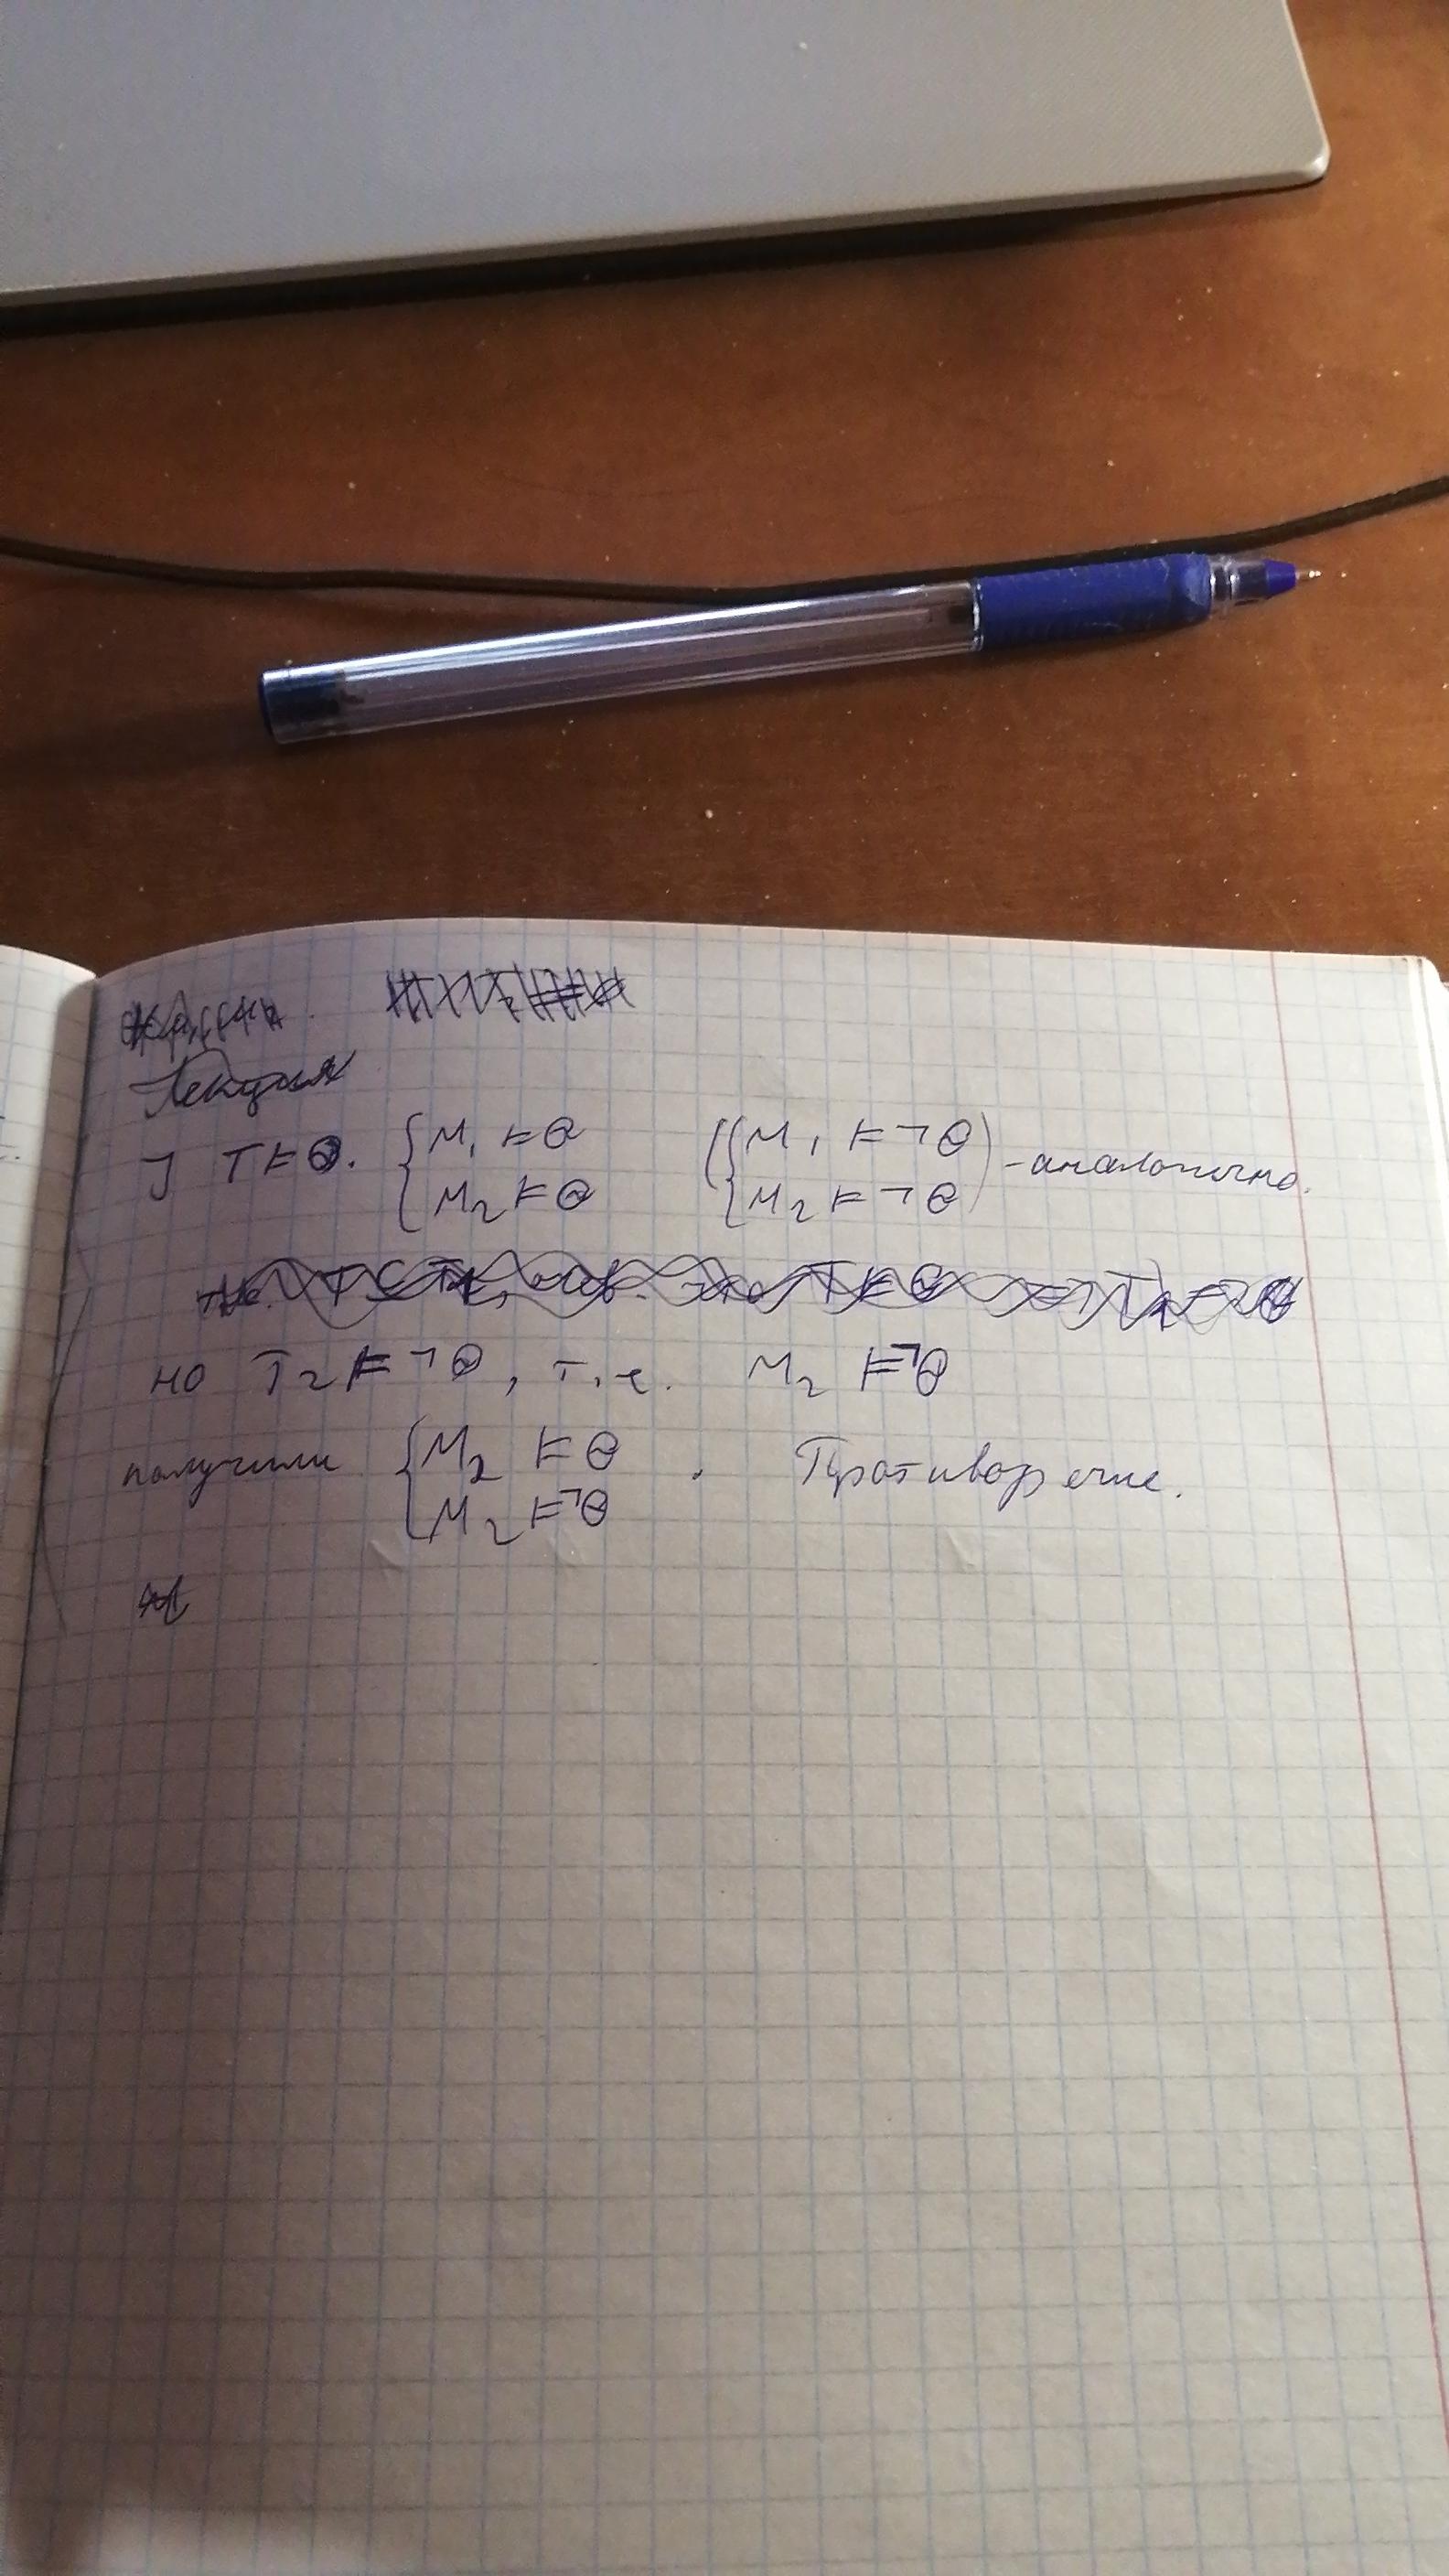 Лекция
J T⊨Θ. { M₁ ⊨ Θ M₂ ⊨ Θ ({ M₁ ⊨ ¬Θ M₂ ⊨ ¬Θ ) - аналогично.
но T₂ ⊨ ¬Θ, т.е. M₂ ⊨ ¬Θ
получили { M₂ ⊨ Θ M₂ ⊨ ¬Θ . Противоречие.